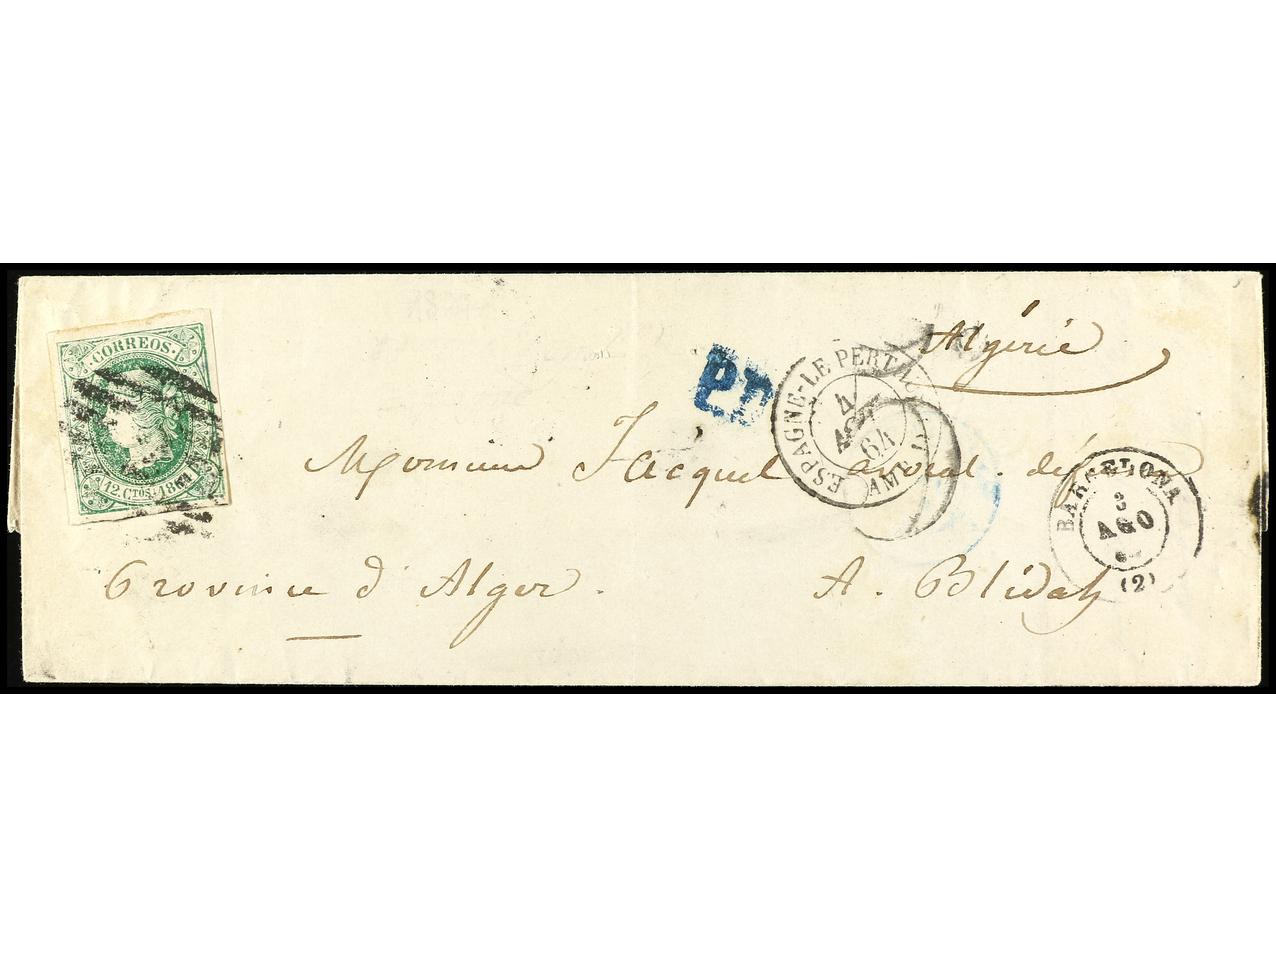 Algérie
CORREOS
12 Ctos. 1864
PD
ESPAGNE-LE PERT
4
AOUT
64
AMB.
Monsieur Jacquet avocat. dé
BARCELONA
3
AGO
(2)
Province d'Alger.
A. Blidah